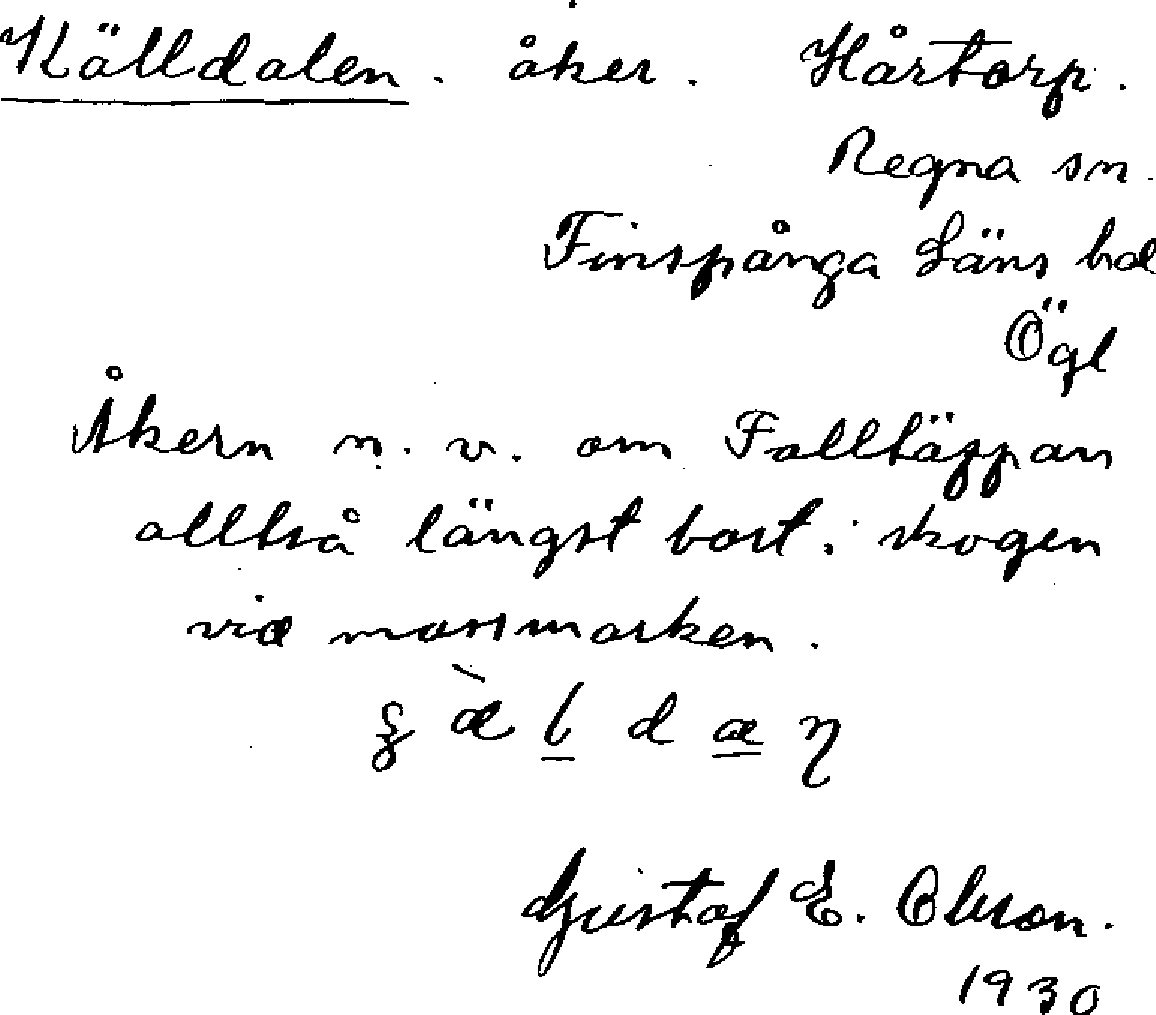 Källdalen. åker. Hårtorp.
Regna sn.
Finspånga läns hd
Ögl
Åkern n. v. om Falltäppan
alltså längst bort i skogen
vid mossmarken.
ʂ æ̀ l̲ d æ̲ η
Gustaf E. Olsson.
1930